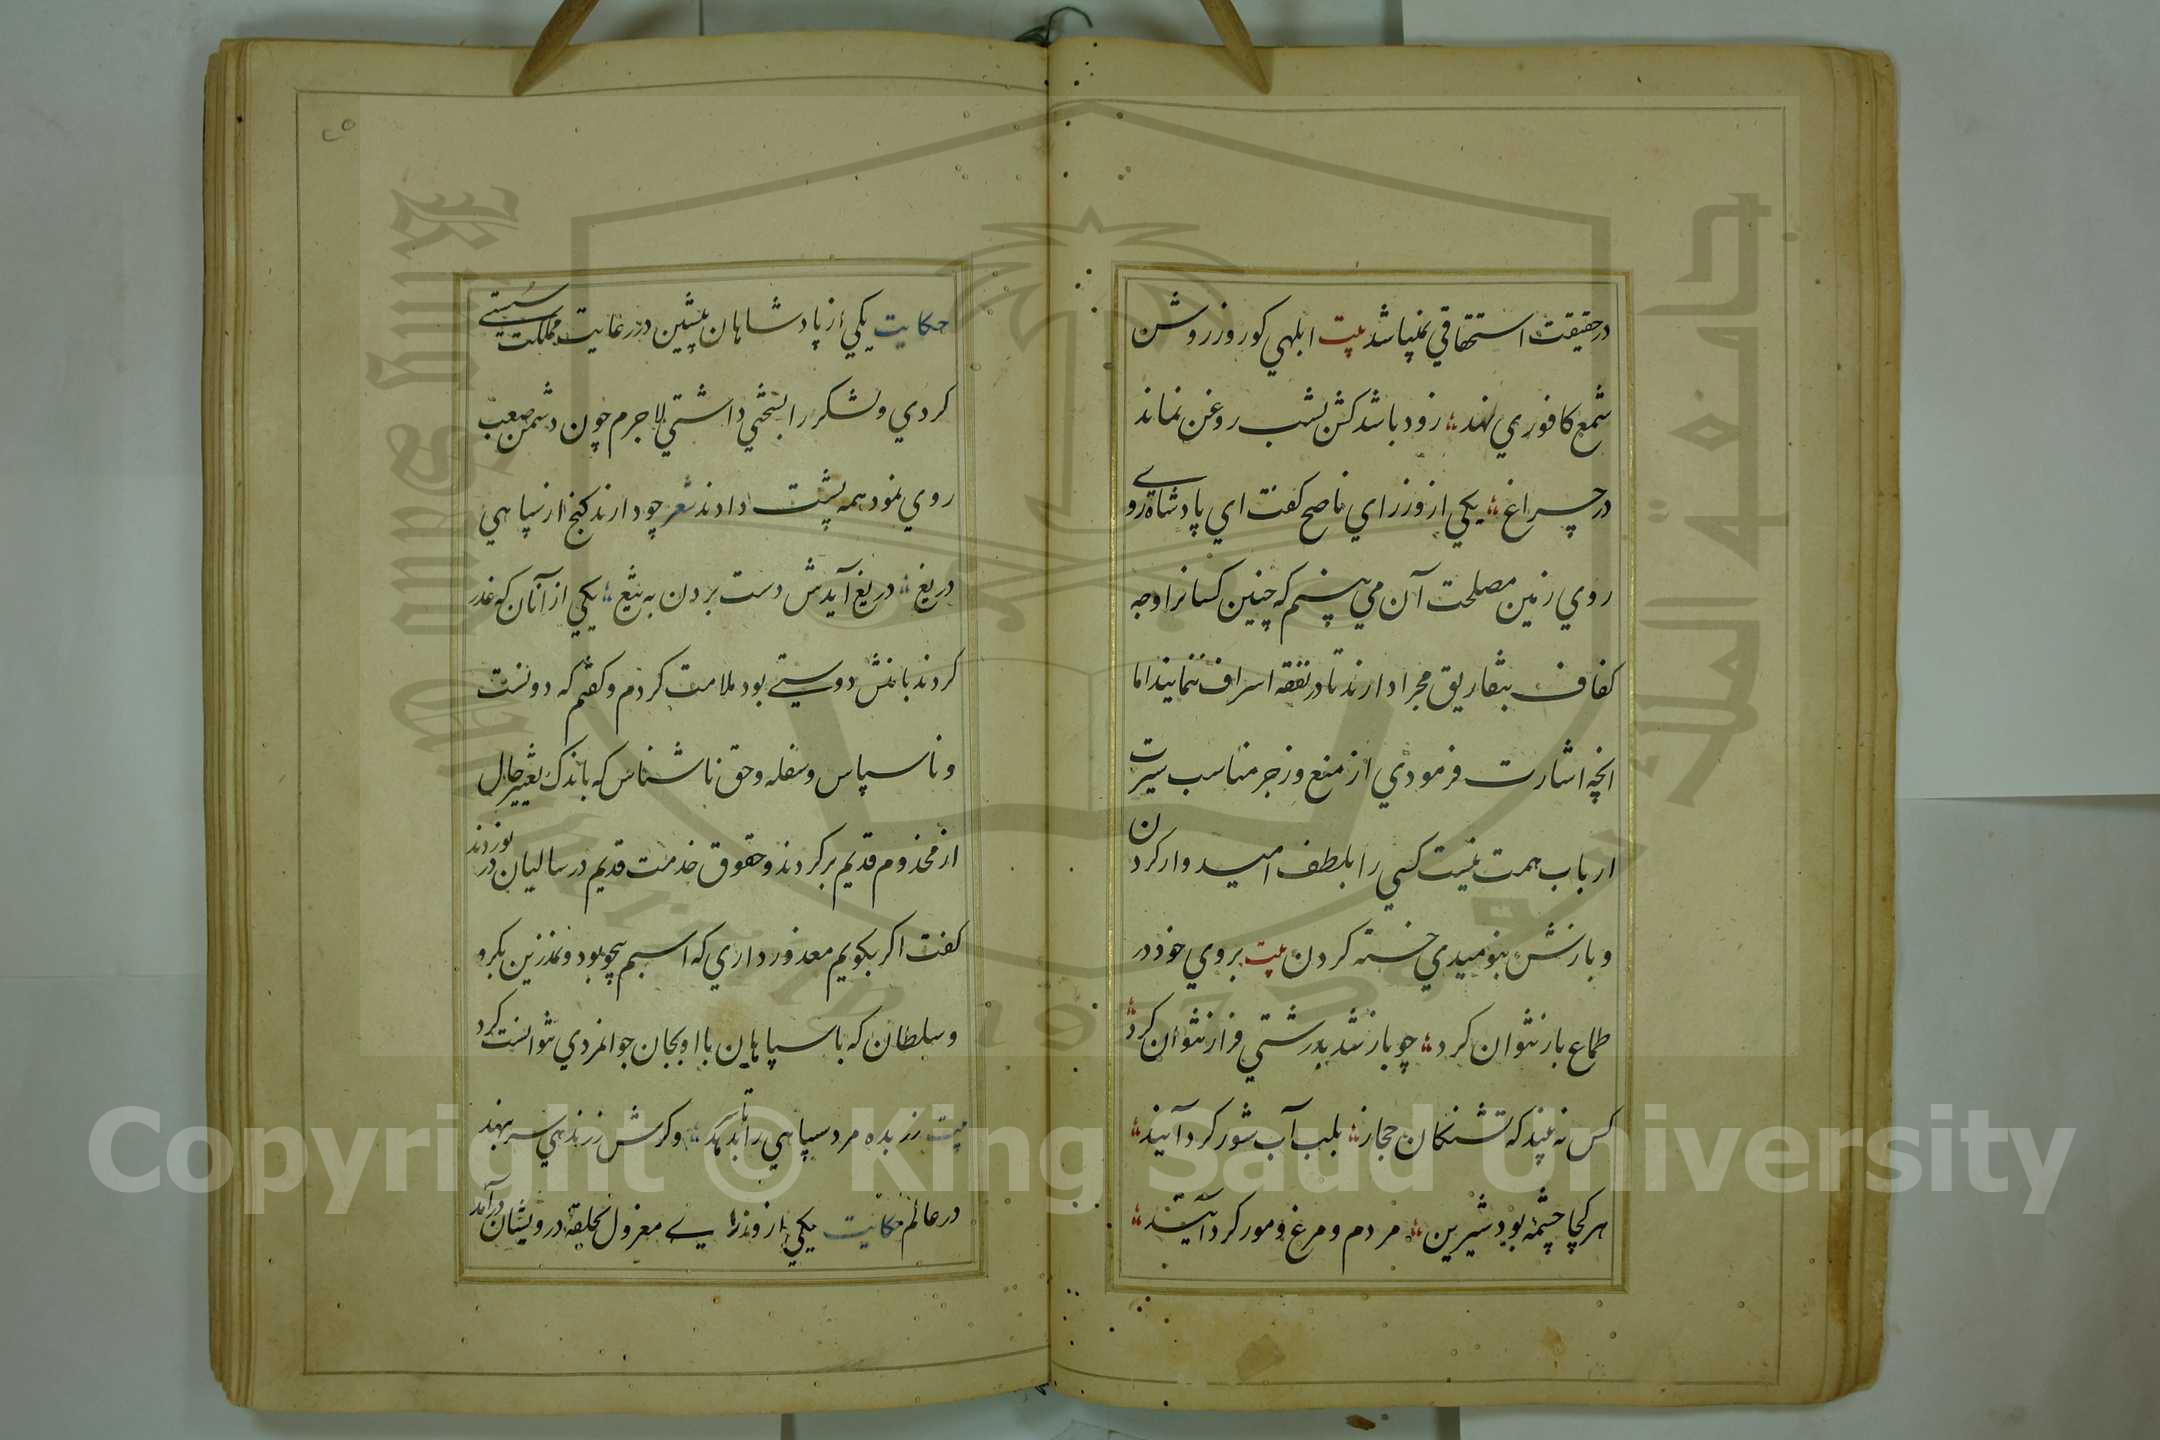 در حقیقت استحقاقي نمیباشد بیت ابلهي کو روز روشن
شمع کافوري نهد زود باشد کش بشب روغن نماند
در چراغ یکي از وزراي ناصح کفت اي پادشاه روے
روي زمین مصلحت آن مي بینم که چنین کسانرا وجه
کفاف بتفاریق مجرا دارند تا در نفقه اسراف ننمایند اما
انچه اشارت فرمودي از منع و زجر مناسب سیرت
ارباب همت نیست کسي را بلطف امیدوار کردن
و بازش بنومیدي خسته کردن بیت بروي خود در
طماع باز نتوان کرد چو باز شد بدرشتي فراز نتوان کرد
کس نه بیند که تشنکان حجاز بلب آب شور کرد آیند
هر کجا چشمه بود شیرین مردم و مرغ و مور کرد آیند
۲۵
حکایت یکي از پادشاهان پیشین در رعایت مملکت سستے
کردي و لشکر را بسختي داشتي لاجرم چون دشمن صعب
روي نمود همه پشت دادند شعر چو دارند کنج از سپاهي
دریغ دریغ آیدش دست بردن به تیغ یکي از آنان که غدر
کردند بامنش دوستے بود ملامت کردم و کفتم که دونست
و ناسپاس و سفله و حق ناشناس که باندک تغییر حال
از مخدوم قدیم برکردند و حقوق خدمت قدیم در سالیان در نوردند
کفت اکر بکویم معذور داري که اسبم بیجو بود و نمدزین بکرو
و سلطان که با سپاهیان با او بجان جوانمردي نتوانست کرد
بیت زر بده مرد سپاهي را تا سر بدهد وکرش زر ندهي سر بنهد
در عالم حکایت یکي از وزرایے معزول بحلیقه درویشان درآمد
Copyright © King Saud University
جامعة الملك سعود
King Saud University
1957